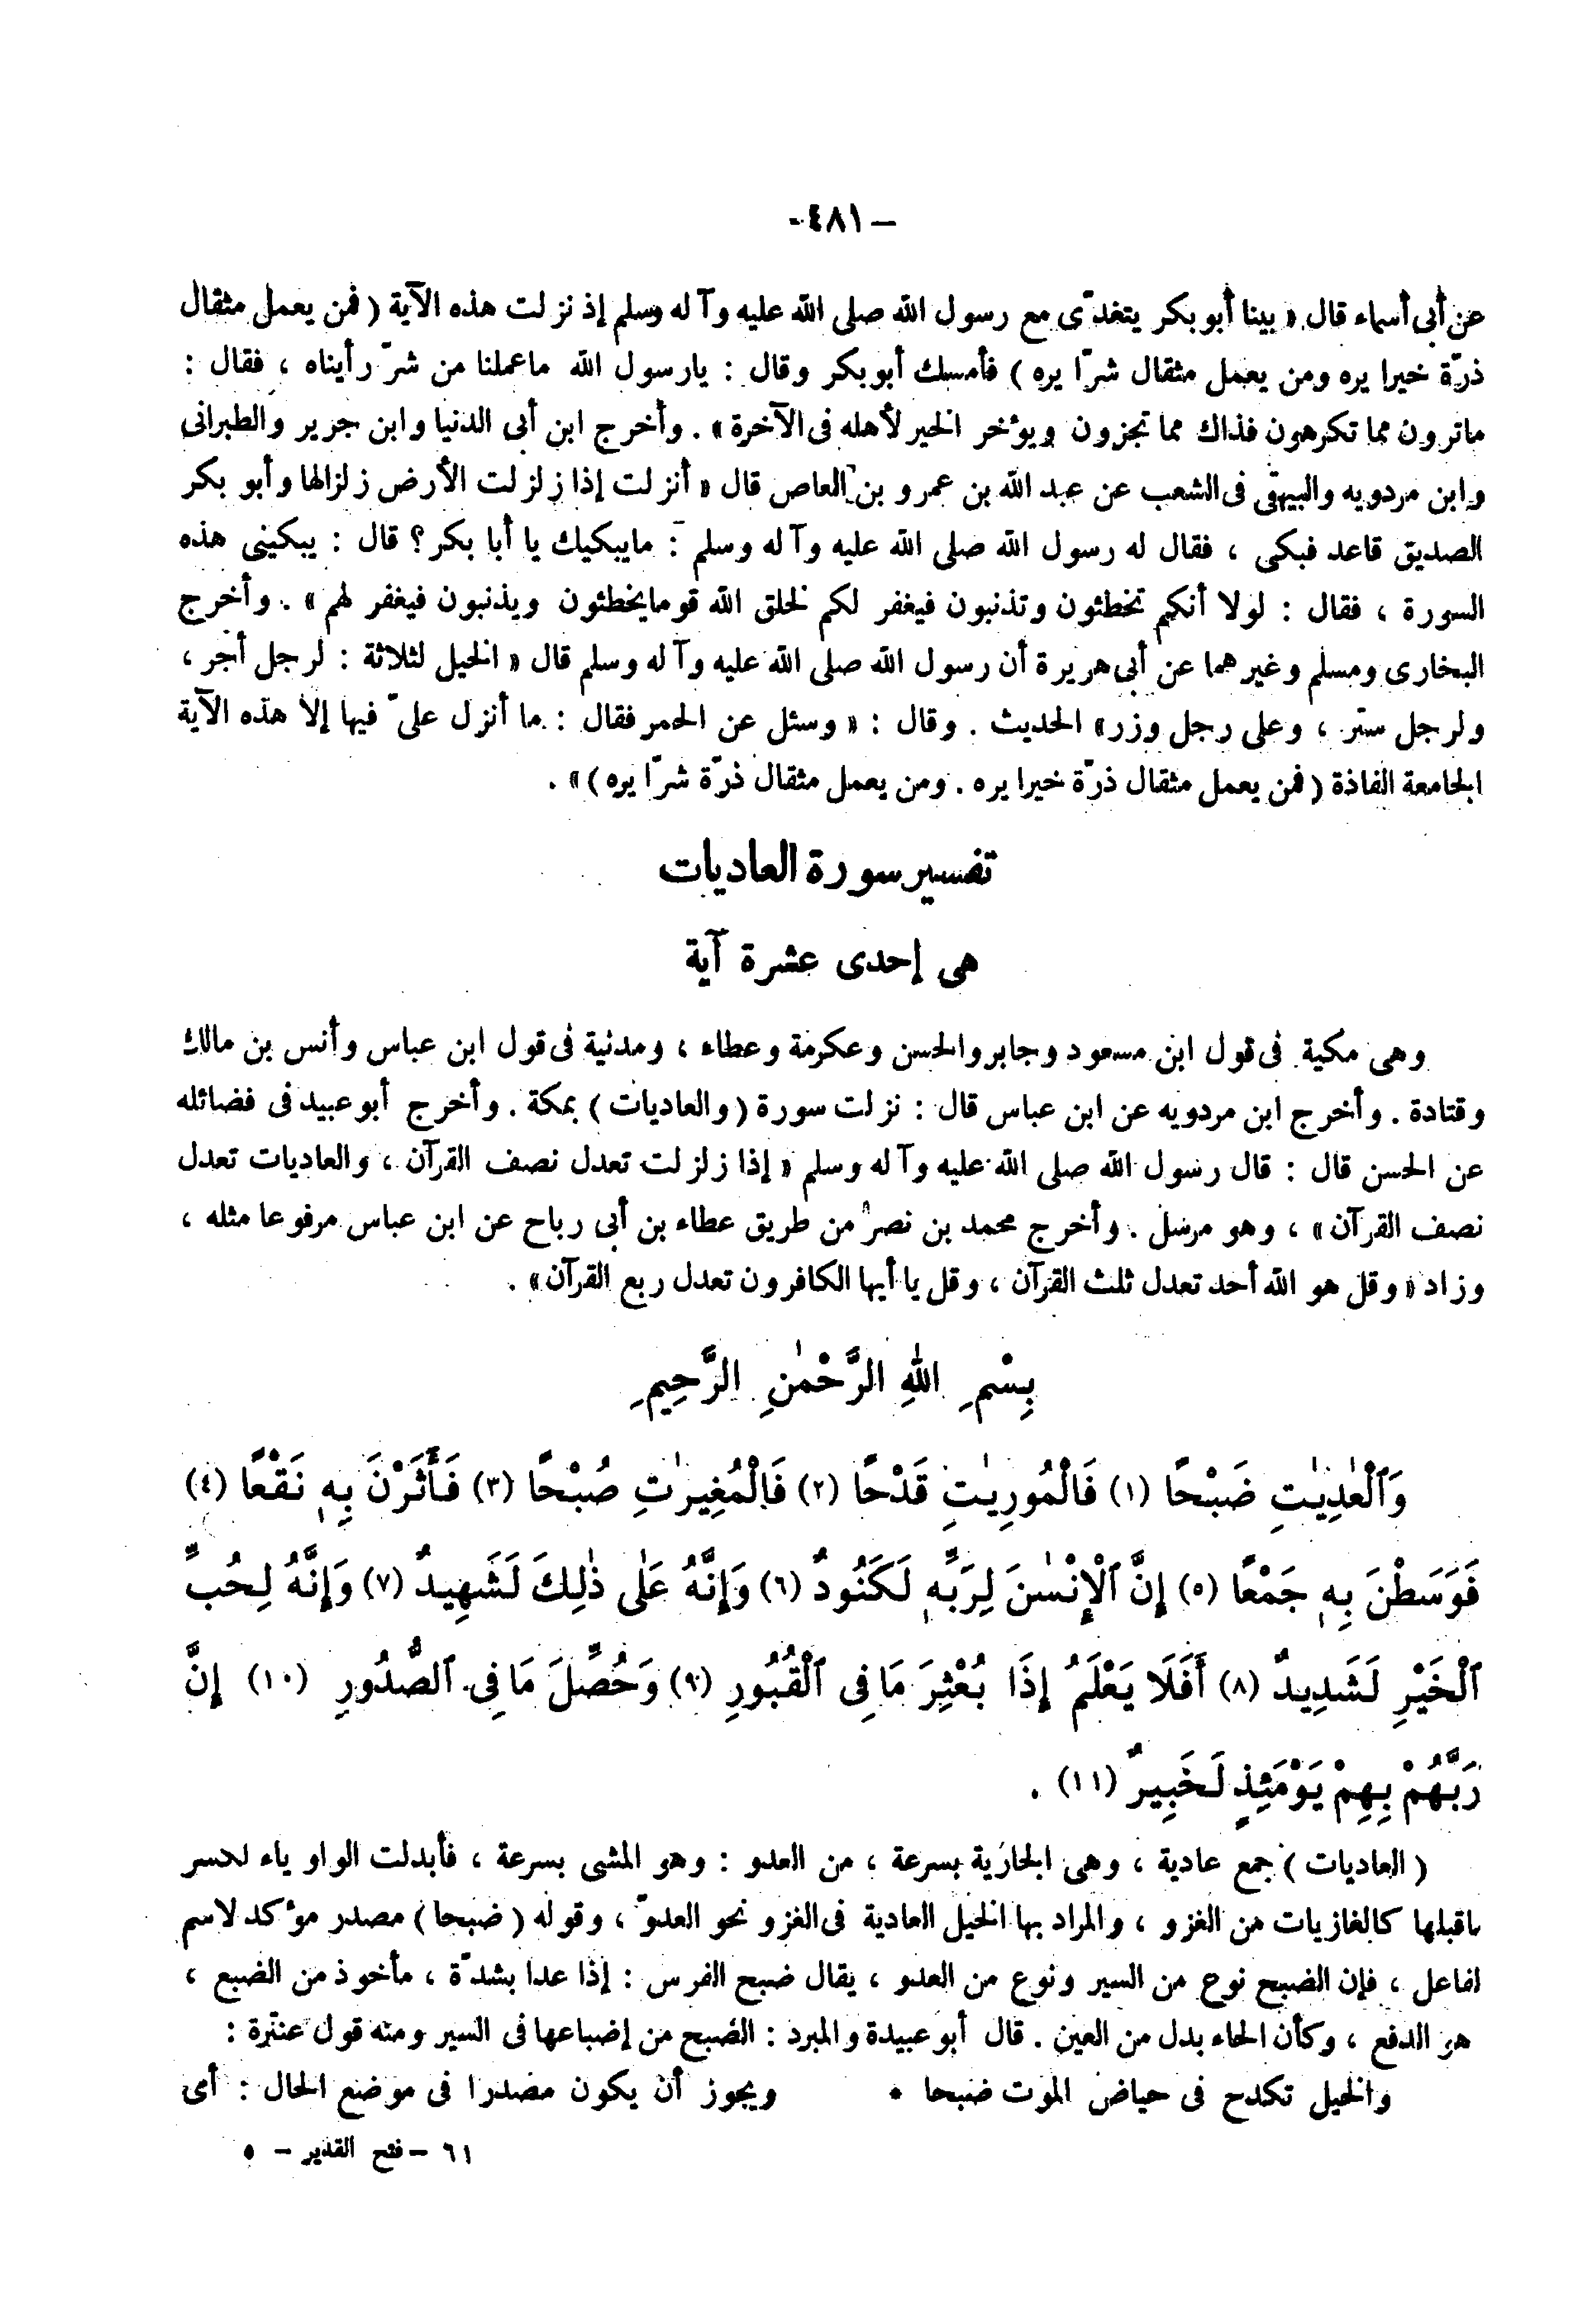 -٤٨١ –
عن أبى أسماء قال « بينا أبوبكر يتغدّى مع رسول الله صلى الله عليه وآله وسلم إذ نزلت هذه الآية ( فمن يعمل مثقال
ذرّة خيرا يره ومن يعمل مثقال شرّا يره ) فأمسك أبوبكر وقال : يارسول الله ماعملنا من شرّ رأيناه ، فقال :
ماترون مما تكرهون فذاك مما تجزون ويؤخر الخير لأهله فى الآخرة » . وأخرج ابن أبى الدنيا وابن جرير والطبرانى
وابن مردويه والبيهقى فى الشعب عن عبد الله بن عمرو بن العاص قال « أنزلت إذا زلزلت الأرض زلزالها وأبو بكر
الصديق قاعد فبكى ، فقال له رسول الله صلى الله عليه وآله وسلم : مايبكيك يا أبا بكر؟ قال : يبكينى هذه
السورة ، فقال : لولا أنكم تخطئون وتذنبون فيغفر لكم لخلق الله قومايخطئون ويذنبون فيغفر لهم » . وأخرج
البخارى ومسلم وغيرهما عن أبى هريرة أن رسول الله صلى الله عليه وآله وسلم قال « الخيل لثلاثة : لرجل أجر ،
ولرجل ستر ، وعلى رجل وزر» الحديث . وقال : « وسئل عن الحمر فقال : ما أنزل علىّ فيها إلا هذه الآية
الجامعة الفاذة ( فمن يعمل مثقال ذرّة خيرا يره . ومن يعمل مثقال ذرّة شرّا يره ) » .
تفسير سورة العاديات
هى إحدى عشرة آية
وهى مكية فى قول ابن مسعود وجابر والحسن وعكرمة وعطاء ، ومدنية فى قول ابن عباس وأنس بن مالك
وقتادة . وأخرج ابن مردويه عن ابن عباس قال : نزلت سورة ( والعاديات ) بمكة . وأخرج أبوعبيد فى فضائله
عن الحسن قال : قال رسول الله صلى الله عليه وآله وسلم « إذا زلزلت تعدل نصف القرآن ، والعاديات تعدل
نصف القرآن » ، وهو مرسل . وأخرج محمد بن نصر من طريق عطاء بن أبى رباح عن ابن عباس مرفوعا مثله ،
وزاد « وقل هو الله أحد تعدل ثلث القرآن ، وقل يا أيها الكافرون تعدل ربع القرآن» .
بِسْمِ اللهِ الرَّحْمٰنِ الرَّحِيمِ
وَٱلْعٰدِيٰتِ ضَبْحًا (١) فَالْمُورِيٰتِ قَدْحًا (٢) فَالْمُغِيرٰتِ صُبْحًا (٣) فَأَثَرْنَ بِهِ نَقْعًا (٤)
فَوَسَطْنَ بِهِ جَمْعًا (٥) إِنَّ ٱلْإِنْسٰنَ لِرَبِّهِ لَكَنُودٌ (٦) وَإِنَّهُ عَلٰى ذٰلِكَ لَشَهِيدٌ (٧) وَإِنَّهُ لِحُبِّ
ٱلْخَيْرِ لَشَدِيدٌ (٨) أَفَلَا يَعْلَمُ إِذَا بُعْثِرَ مَا فِى ٱلْقُبُورِ (٩) وَحُصِّلَ مَا فِى ٱلصُّدُورِ (١٠) إِنَّ
رَبَّهُمْ بِهِمْ يَوْمَئِذٍ لَخَبِيرٌ (١١) .
( العاديات ) جمع عادية ، وهى الجارية بسرعة ، من العدو : وهو المشى بسرعة ، فأبدلت الواو ياء لكسر
ماقبلها كالغازيات من الغزو ، والمراد بها الخيل العادية فى الغزو نحو العدوّ ، وقوله ( ضبحا ) مصدر مؤكد لاسم
الفاعل ، فإن الضبح نوع من السير ونوع من العدو ، يقال ضبح الفرس : إذا عدا بشدّة ، مأخوذ من الضبع ،
هو الدفع ، وكأن الحاء بدل من العين . قال أبوعبيدة والمبرد : الضبح من إضباعها فى السير ومنه قول عنترة :
والخيل تكدح فى حياض الموت ضبحا * ويجوز أن يكون مصدرا فى موضع الحال : أى
٦١ – فتح القدير – ٥